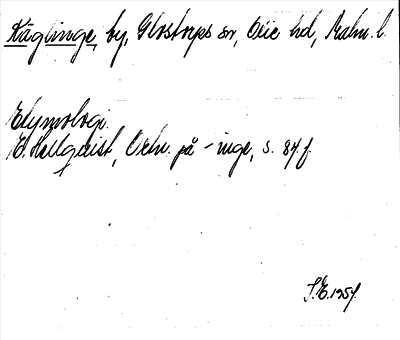 Käglinge, by, Glostorps sn, Oxie hd, Malm. l.
Etymologi.
E. Hellquist, Ortn. på -inge, s. 84 f.
S.E. 1954.